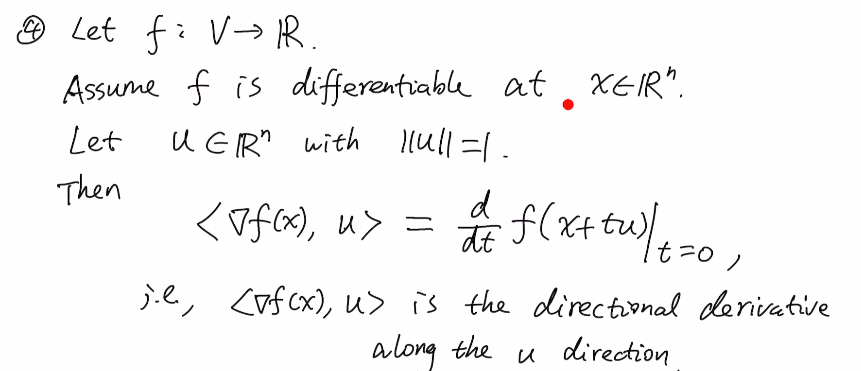 ④ Let f: V→ℝ.
Assume f is differentiable at x∈ℝⁿ.
Let u∈ℝⁿ with ||u||=1.
Then
<∇f(x), u> = d/dt f(x+tu)|_{t=0},
i.e, <∇f(x), u> is the directional derivative
along the u direction.